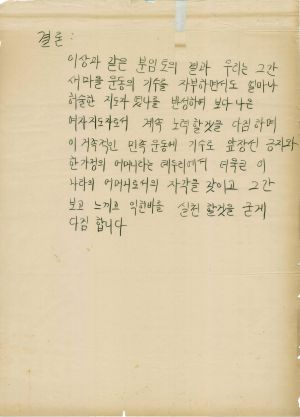 결론:
이상과 같은 분임토의 결과 우리는 그간
새마을 운동의 기수를 자부하면서도 얼마나
허술한 지도자 였나를 반성하며 보다 나은
여자지도자로서 계속 노력할것을 다짐하며
이 거족적인 민족 운동에 기수로 앞장선 긍지와
한가정의 어머니라는 테두리에서 더욱큰 이
나라의 어머니로서의 자각을 갖이고 그간
보고 느끼고 익힌바를 실천 할것을 굳게
다짐 합니다